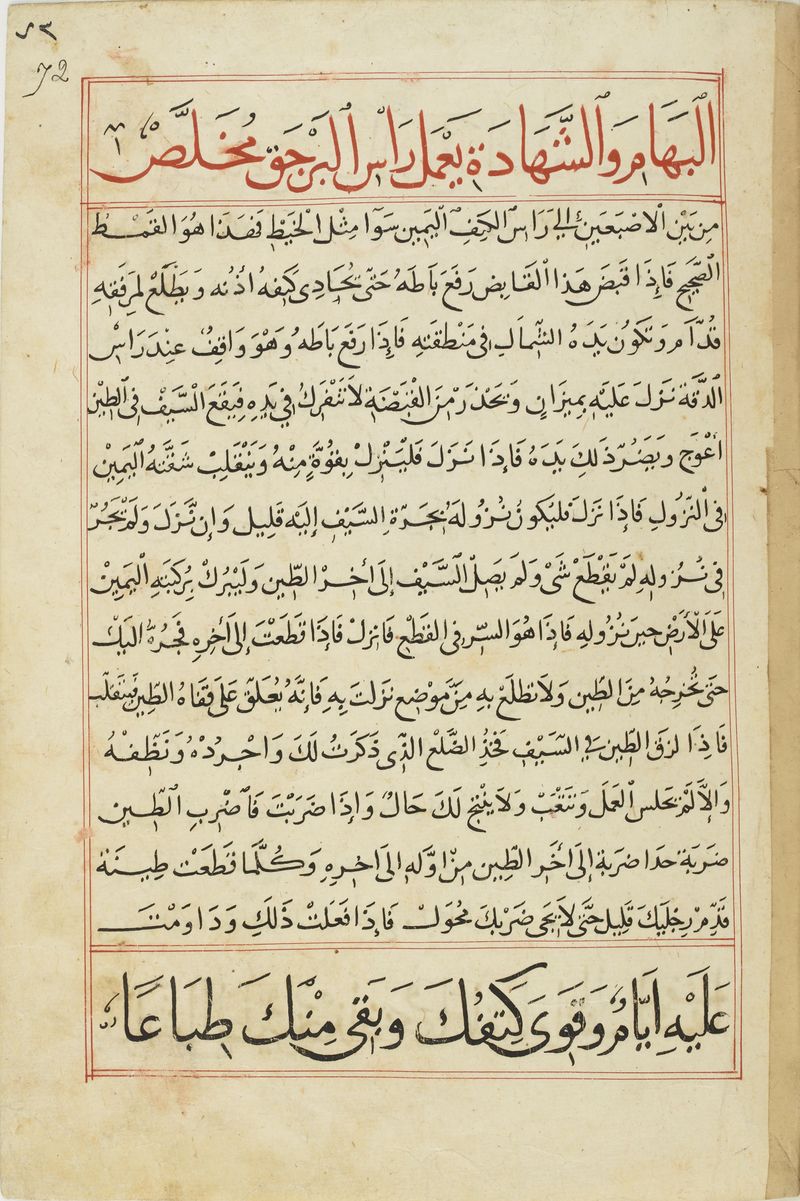 ٧٢
72
البهام والشهادة يعمل راس البرجق مخلص
من بين الاصبعين الى راس الكتف اليمين سوا مثل الخيط فهذا هو القمط
الصحيح فإذا قبض هذا القابض رفع باطه حتى يحادى كفه اذنه ويطلع لمرفقه
قدام وتكون يده الشمال فى منطقته فإذا رفع باطه وهو واقف عند راس
الدقة نزل عليه بميزان ويحذر من القبضة لا تنفرك في يده فيقع السيف فى الطين
اعوج ويضر ذلك يده فإذا نزل فلينزل بقوة منه وينقلب شقته اليمين
فى النزول فإذا نزل فليكون نزوله بجرة السيف إليه قليل وإن نزل ولم يجر
فى نزوله لم يقطع شى ولم يصل السيف إلى أخر الطين وليبرك بركبته اليمين
على الأرض حين نزوله فإذا هو السر فى القطع فانزل فإذا قطعت إلى أخره فجره اليك
حتى تخرجه من الطين ولا تطلع به من موضع نزلت به فإنه يعلق على قفاه الطين فينقلب
فإذا لزق الطين في السيف فخذ الضلع الذى ذكرت لك واجرده ونظفه
وإلا لم يخلس العمل وتتعب ولا ينتج لك حال وإذا ضربت فاضرب الطين
ضربة حدا ضربة إلى أخر الطين من اوله الى اخره وكلما قطعت طينة
قدم رجليك قليل حتى لا يجى ضربك محول فإذا فعلت ذلك وداومت
عليه ايام وقوى كتفك وبقى منك طباعا